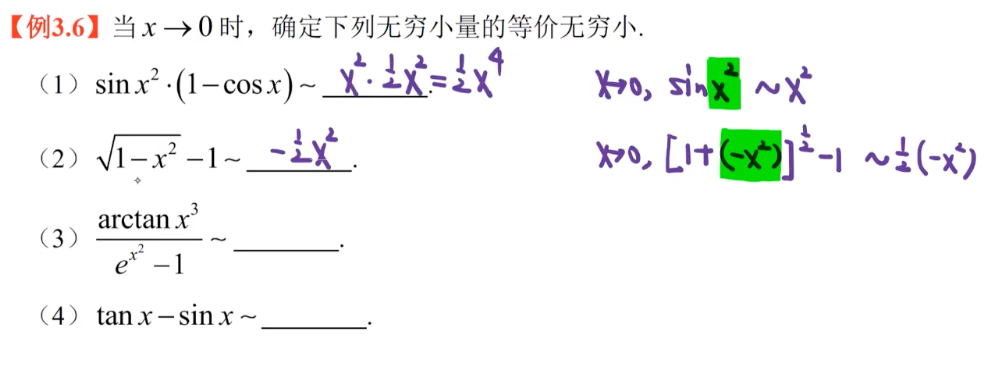 【例3.6】当 x → 0 时，确定下列无穷小量的等价无穷小.
（1）sin x²·(1−cos x) ~ x²·½x²=½x⁴. x→0, sin x² ~ x²
（2）√(1−x²) −1 ~ −½x². x→0, [1+(−x²)]^½ −1 ~ ½(−x²)
（3）(arctan x³)/(e^(x²) −1) ~ ______.
（4）tan x − sin x ~ ______.